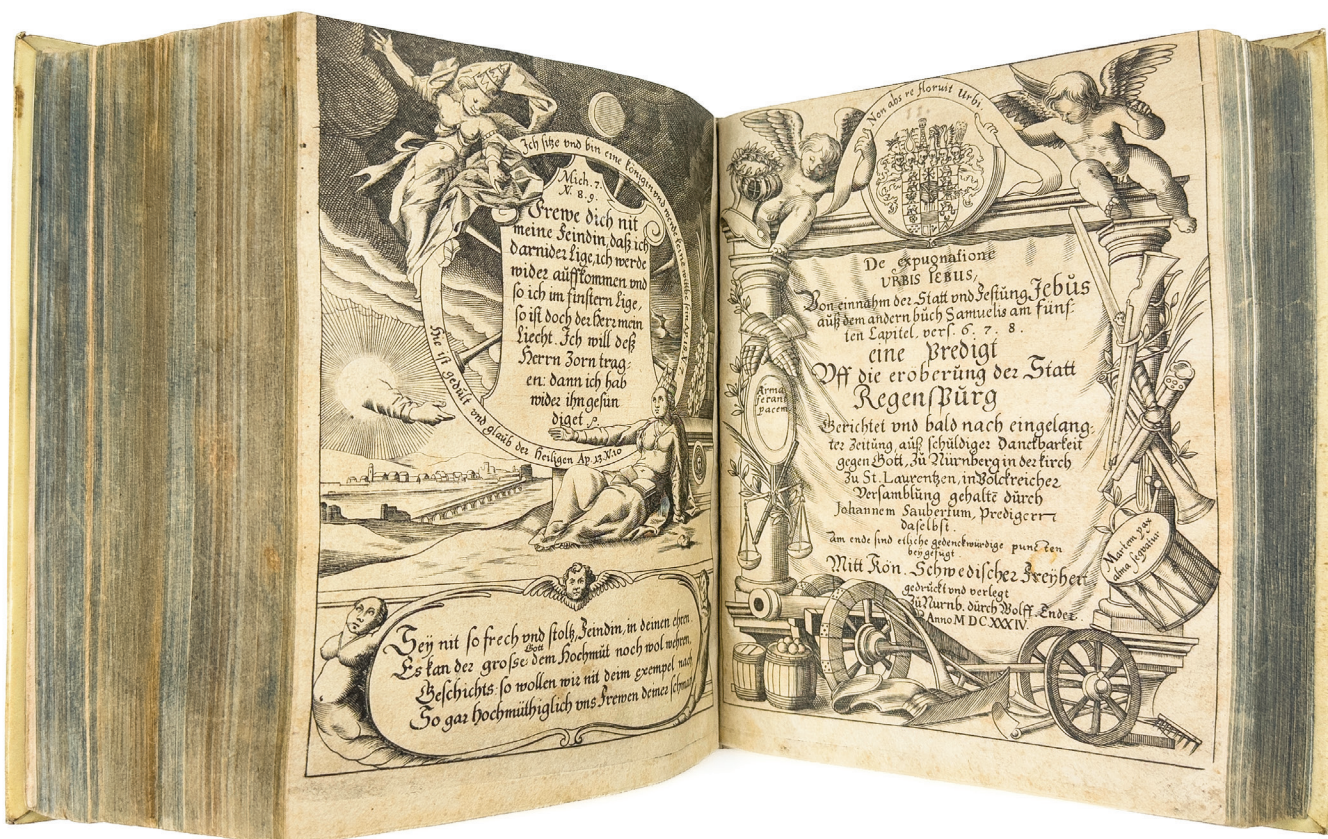 Ich sitze vnd bin eine Königin vnd werde keine witbe sein Ap. 18. V. 7.
Mich. 7.
V. 8. 9.
Frewe dich nit
meine Feindin, daß ich
darnider lige, ich werde
wider auffkommen vnd
so ich im finstern lige,
so ist doch der Herr mein
Liecht. Ich will deß
Herrn Zorn trag-
en: dann ich hab
wider ihn gesün
diget
Hie ist gedült vnd glaub der Heiligen Ap. 13. V. 10
Sey nit so frech vnd stoltz, Feindin, in deinen ehren
Es kan der grosse Gott dem Hochmüt noch wol wehren,
Geschichts: so wollen wir nit deim exempel nach
So gar hochmüthiglich vns Frewen deiner schmach
Non abs re floruit Urbi.
De expugnatione
URBIS IEBUS,
Von einnahm der Statt vnd Festung Jebŭs
auß dem andern bŭch Samuelis am fŭnf-
ten Capitel, vers. 6. 7. 8.
eine Predigt
Vff die eroberŭng der Statt
Regenspŭrg
Gerichtet vnd bald nach eingelang-
ter Zeitŭng, aŭß schŭldiger Danckbarkeit
gegen Gott, Zŭ Nŭrnberg in der kirch
Zŭ St. Laurentzen, in Volckreicher
Versamblŭng gehaltē dŭrch
Johannem Saubertum, Predigern
daselbst.
Am ende sind etliche gedenckwŭrdige puncten
beygefŭgt
Mitt Kön. Schwedischer Freÿheit
gedrŭckt vnd verlegt
Zŭ Nŭrnb. dŭrch Wolff. Ender.
Anno M DC XXXIV
Arma
ferant
pacem
Martem pax
alma seqvatur